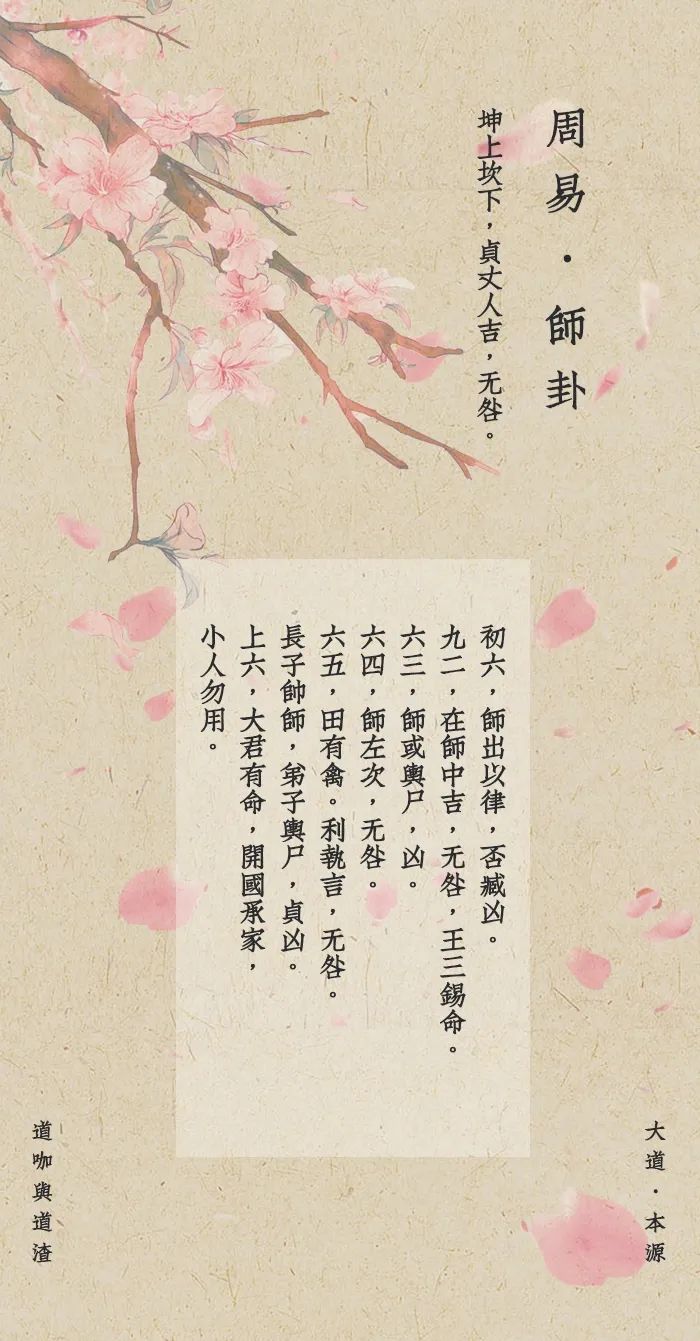 周易·師卦
坤上坎下，貞丈人吉，无咎。
初六，師出以律，否臧凶。
九二，在師中吉，无咎，王三錫命。
六三，師或輿尸，凶。
六四，師左次，无咎。
六五，田有禽。利執言，无咎。
長子帥師，弟子輿尸，貞凶。
上六，大君有命，開國承家，
小人勿用。
大道·本源
道咖與道渣